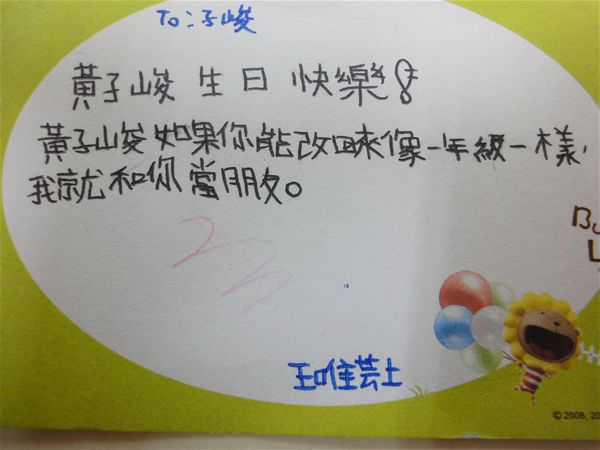 To：子峻
黃子峻 生日快樂！
黃子峻如果你能改回來像一年級一樣，
我就和你當朋友。
王唯芸上
© 2006, 20